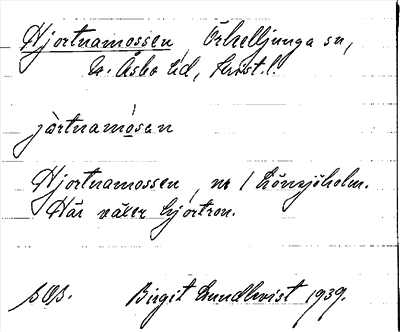 Hjortnamossen, Örkelljunga sn,
N. Åsbo hd, Krist. l.
jårtnamòsan
Hjortnamossen, nr 1 Lönnsjöholm.
Här växer hjortron.
SOS. Birgit Lundkvist 1939.